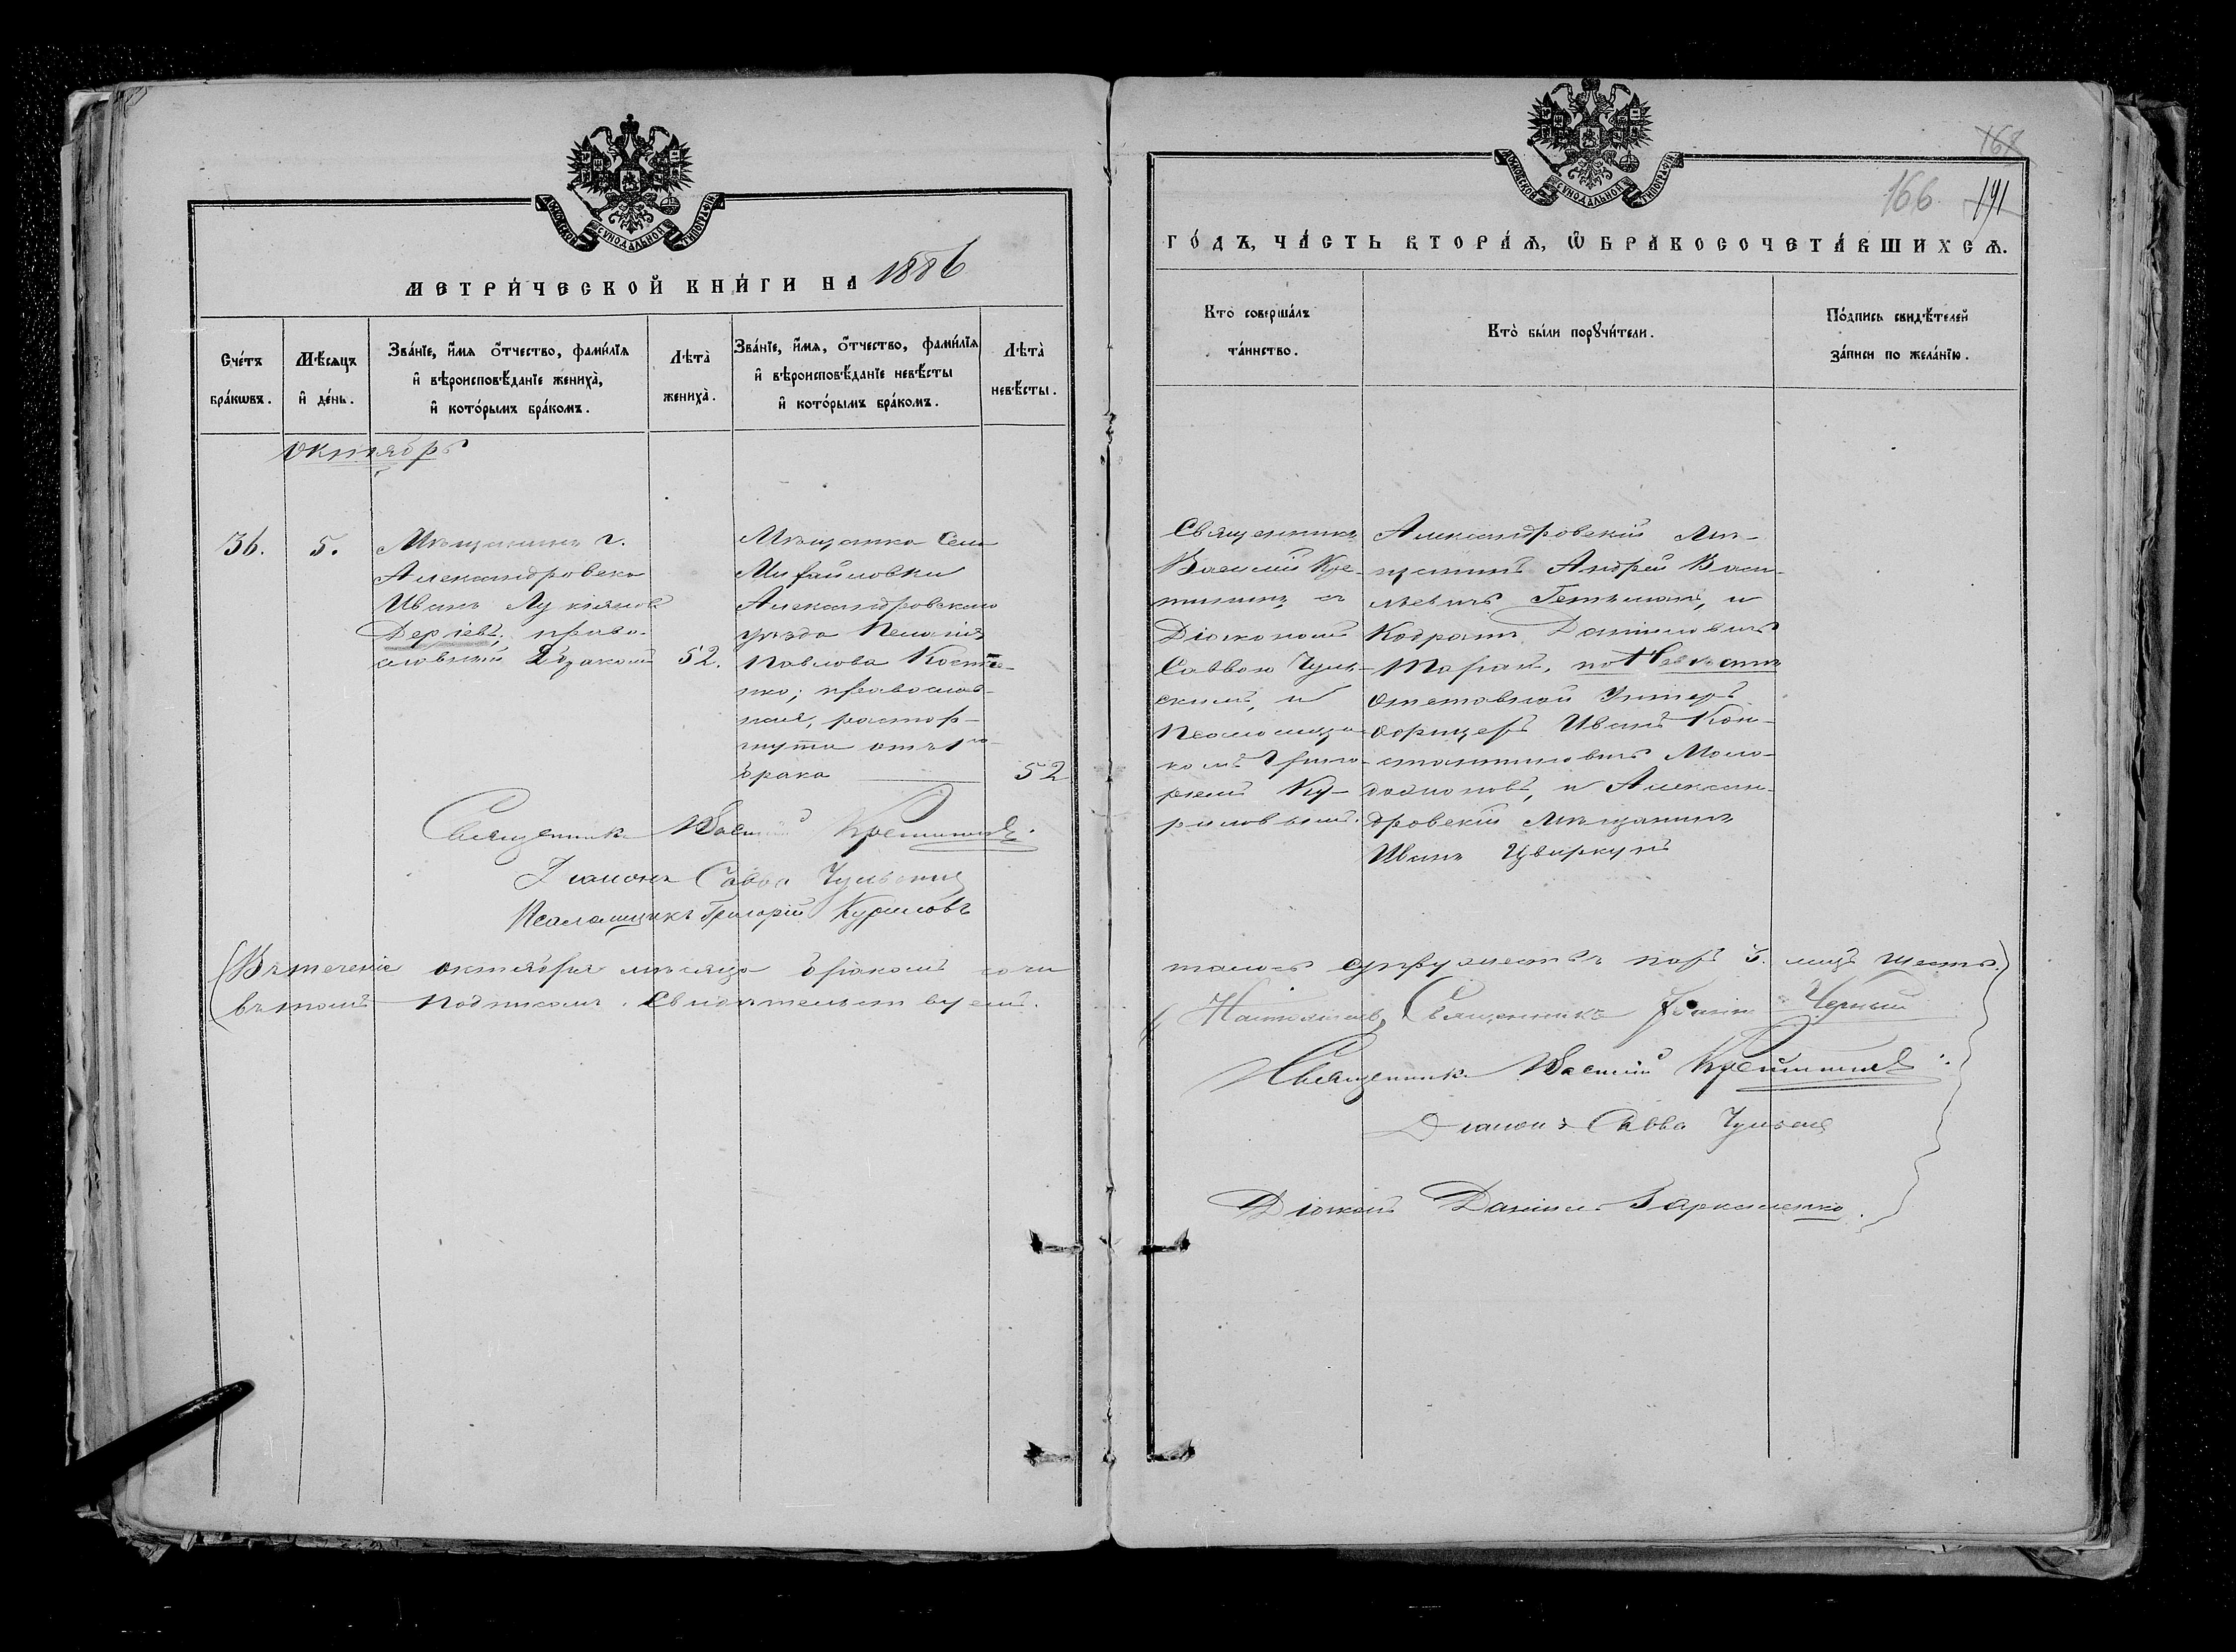 МОСКОВСКОЙ СѴНОДАЛЬНОЙ ТИПОГРАФІИ
МЕТРИ́ЧЕСКОЙ КНИ́ГИ НА 1886
Сче́тъ бра́кѡвъ.
Мѣ́сяцъ и҆ де́нь.
Зва́нїе, и҆́мя ѻ҆́тчество, фами́лїя и҆ вѣроисповѣ́данїе жениха̀, и҆ кото́рымъ бра́комъ.
Лѣта̀ жениха̀.
Зва́нїе, и҆́мя, ѻ҆́тчество, фами́лїя и҆ вѣроисповѣ́данїе невѣ́сты и҆ кото́рымъ бра́комъ.
Лѣта̀ невѣ́сты.
Октябрь
36.
5.
Мѣщанинъ г.
Александровска
Иванъ Лукіяновъ
Дергіевъ, право-
славный 2 бракомъ
52.
Мѣщанка Села
Михайловки
Александровскаго
уѣзда Пелагія
Павлова Косте-
нко; православ-
ная, расторг-
нута отъ 1го
брака
52
Священникъ Василій
Діаконъ Савва Чульскій
Псаломщикъ Григорій Куриловъ
(Втеченіе октября мѣсяца бракомъ соче
въ томъ подписомъ свидѣтельствуемъ.
МОСКОВСКОЙ СѴНОДАЛЬНОЙ ТИПОГРАФІИ
168
166 191
ГО́ДЪ, ЧА́СТЬ ВТОРА́Ѧ, Ѽ БРАКОСОЧЕТА́ВШИХСѦ.
Кто̀ соверша́лъ та́инство.
Кто̀ бы́ли порꙋчи́тели.
По́дпись свидѣ́телей за́писи по жела́нїю.
Священникъ
Василій Кре-
съ
Діакономъ
Саввою Чуль-
скимъ, и
Псаломщи-
комъ Григо-
ріемъ Ку-
риловымъ.
Александровскій Мѣ-
щанинъ Андрей Васи-
льевичъ Гетьманъ, и
Кодратъ Даниловичъ
Таранъ, по невѣстѣ
отставной Унтеръ
офицеръ Иванъ Кон-
стантиновичъ Моло-
и Алексан-
дровскій мѣщанинъ
Иванъ Цвиркунъ
талось супружествъ паръ 3. лицъ шесть.)
Настоятель, Священникъ Іоаннъ Черный
Священникъ Василій
Діаконъ Савва Чульскій
Діаконъ Даніилъ